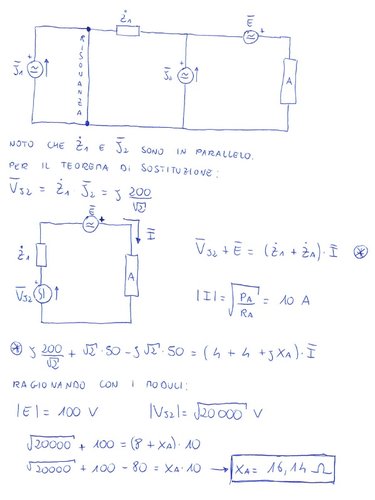 Ż₁
Ē
J̄₁
RISONANZA
J̄₂
A
NOTO CHE Ż₁ E J̄₂ SONO IN PARALLELO.
PER IL TEOREMA DI SOSTITUZIONE:
V̄J2 = Ż₁ · J̄₂ = j 200/√2
Ē
Ī
Ż₁
A
V̄J2
V̄J2 + Ē = (Ż₁ + ŻA) · Ī ⊛
|I| = √(PA/RA) = 10 A
⊛ j 200/√2 + √2 · 50 - j √2 · 50 = (4 + 4 + jXA) · Ī
RAGIONANDO CON I MODULI:
|E| = 100 V |VJ2| = √20000 V
√20000 + 100 = (8 + XA) · 10
√20000 + 100 - 80 = XA · 10 → XA = 16,14 Ω